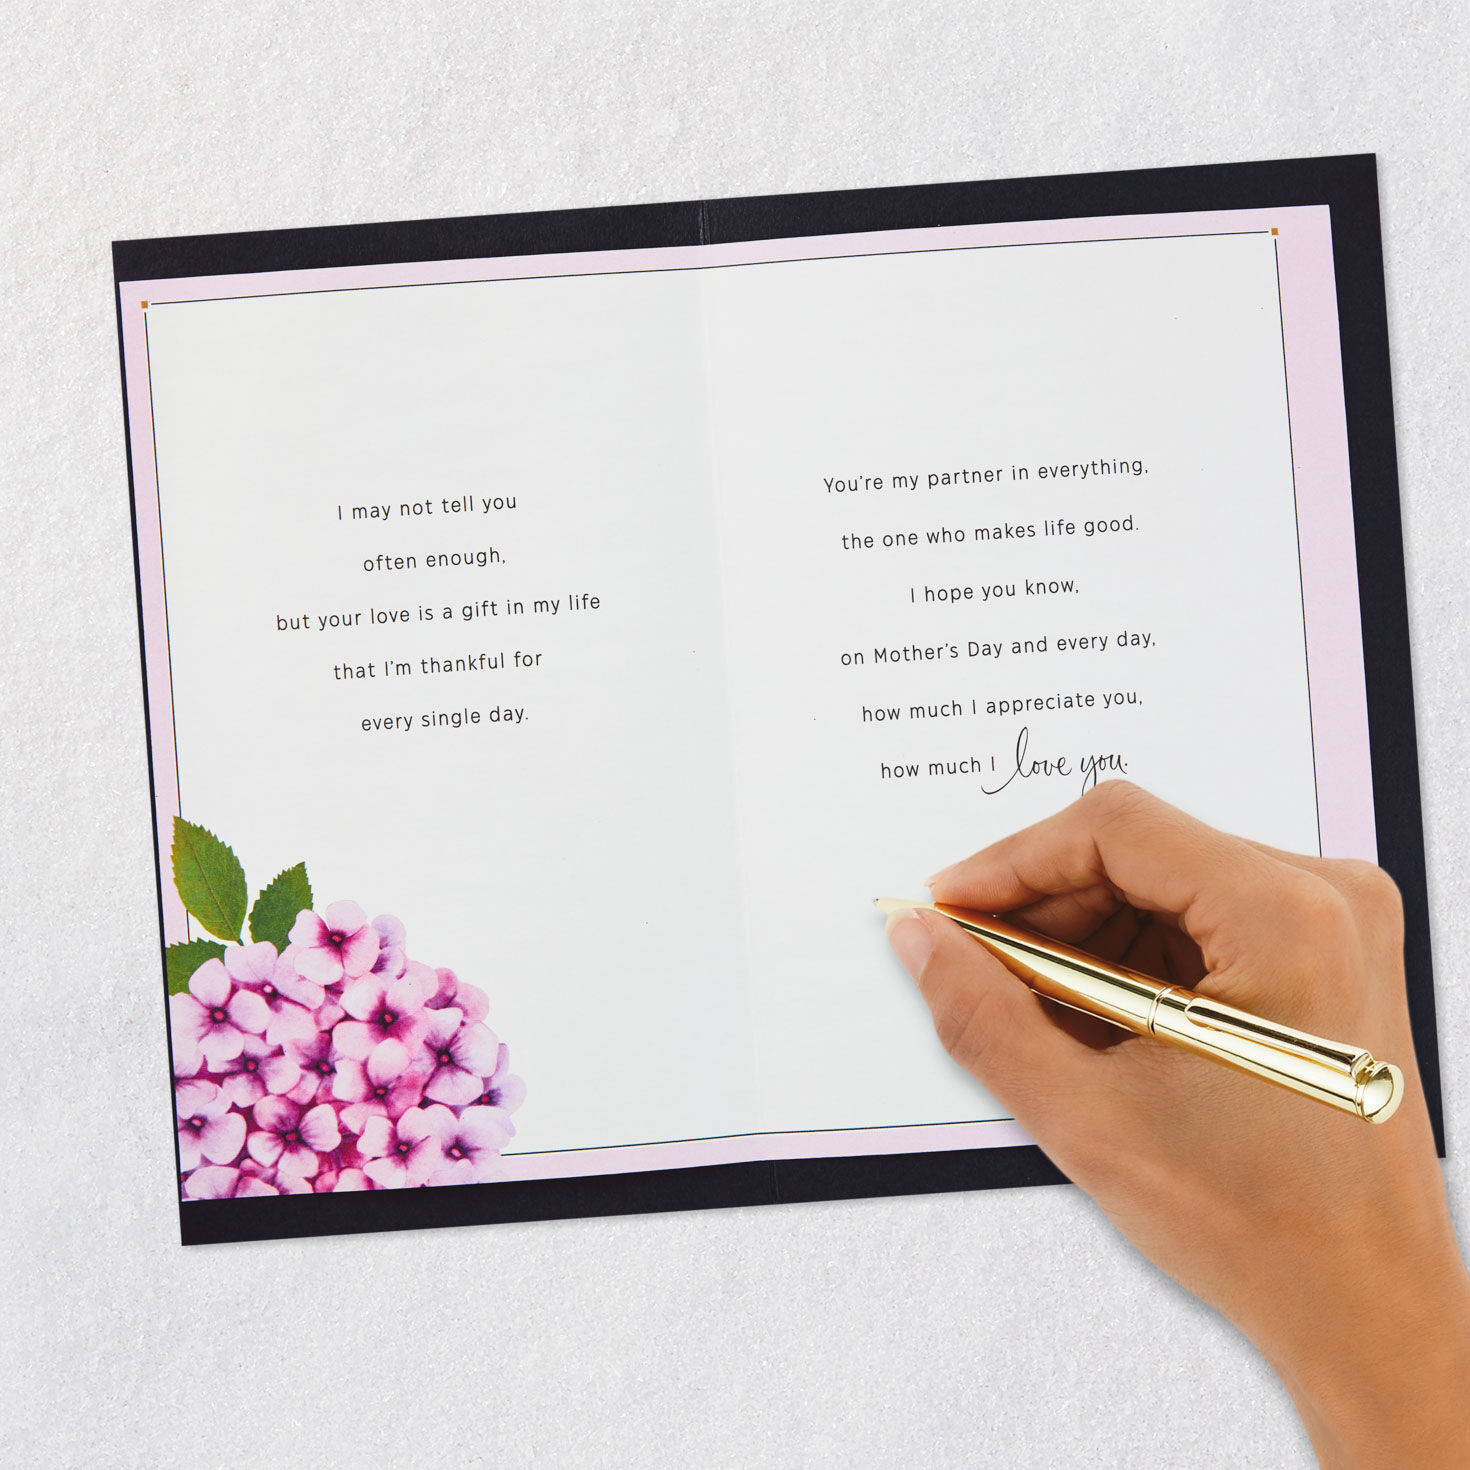 I may not tell you
often enough,
but your love is a gift in my life
that I'm thankful for
every single day.
You're my partner in everything,
the one who makes life good.
I hope you know,
on Mother's Day and every day,
how much I appreciate you,
how much I love you.